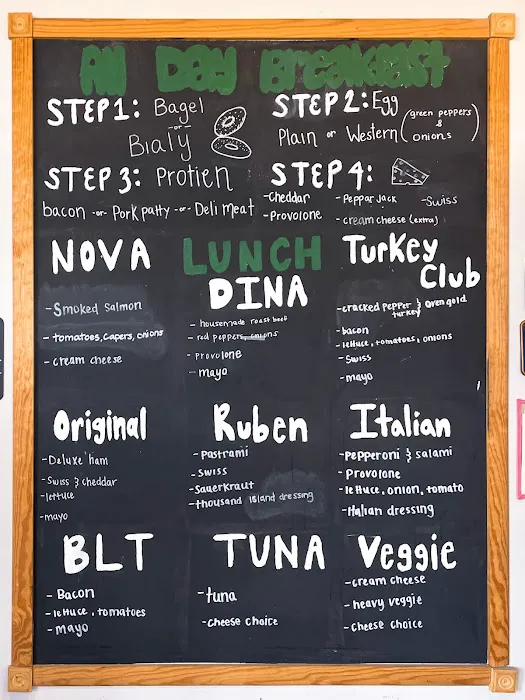 All Day Breakfast
STEP 1: Bagel
-or-
Bialy
STEP 2: Egg
Plain or Western (green peppers & onions)
STEP 3: Protien
bacon -or- Pork patty -or- Deli meat
STEP 4:
-cheddar -Pepper jack -Swiss
-Provolone -cream cheese (extra)
NOVA
-Smoked Salmon
-tomatoes, capers, onions
-cream cheese
LUNCH
DINA
-housemade roast beef
-red peppers, onions
-provolone
-mayo
Turkey
Club
-cracked pepper & ovengold
turkey
-bacon
-lettuce, tomatoes, onions
-Swiss
-mayo
Original
-Deluxe ham
-Swiss & cheddar
-lettuce
-mayo
Ruben
-Pastrami
-Swiss
-Sauerkraut
-thousand island dressing
Italian
-Pepperoni & salami
-Provolone
-lettuce, onion, tomato
-Italian dressing
BLT
-Bacon
-lettuce, tomatoes
-Mayo
TUNA
-tuna
-cheese choice
Veggie
-cream cheese
-heavy veggie
-cheese choice